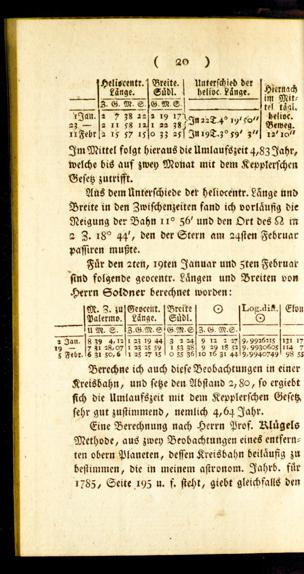 ( 20 )
Heliocentr. Länge. | Breite. Südl. | Unterschied der helioc. Länge. | Hiernach im Mittel tägl. helioc. Beweg. 12′10″
Z. G. M. S. | G. M. S.
1 Jan. 2 7 38 22 | 2 19 17 | In 22 T. 4° 19′ 50″
23 — 2 11 58 12 | 1 22 38
11 Febr 2 15 57 15 | 0 33 25 | In 19 T. 3° 59′ 3″
Im Mittel folgt hieraus die Umlaufszeit 4,83 Jahr,
welche bis auf zwey Monat mit dem Kepplerschen
Gesetz zutrifft.
Aus dem Unterschiede der heliocentr. Länge und
Breite in den Zwischenzeiten fand ich vorläufig die
Neigung der Bahn 11° 56′ und den Ort des ☊ in
2 Z. 18° 44′, den der Stern am 24sten Februar
passiren mußte.
Für den 2ten, 19ten Januar und 5ten Februar
sind folgende geocentr. Längen und Breiten von
Herrn Soldner berechnet worden:
M. Z. zu Palermo. | Geocent. Länge. | Breite Südl. | ☉ | Log. dist. ☉ | Elon
U. M. S. | Z. G. M. S | G. M. S | Z. G. M. S.
2 Jan. 8 39 4,12 | 1 23 19 44 | 3 2 24 | 9 12 2 27 | 9,9926215 | 131 17
19 — 7 31 28,07 | 1 23 25 59 | 1 53 38 | 9 29 18 12 | 9,9930605 | 114 7
5 Febr. 6 31 50,6 | 1 25 27 15 | 0 55 36 | 10 16 31 44 | 9,9940749 | 98 55
Berechne ich auch diese Beobachtungen in einer
Kreisbahn, und setze den Abstand 2,80, so ergiebt
sich die Umlaufszeit mit dem Kepplerschen Gesetz
sehr gut zustimmend, nemlich 4,64 Jahr.
Eine Berechnung nach Herrn Prof. Klügels
Methode, aus zwey Beobachtungen eines entfern-
ten obern Planeten, dessen Kreisbahn beiläufig zu
bestimmen, die in meinem astronom. Jahrb. für
1785, Seite 195 u. f. steht, giebt gleichfalls den